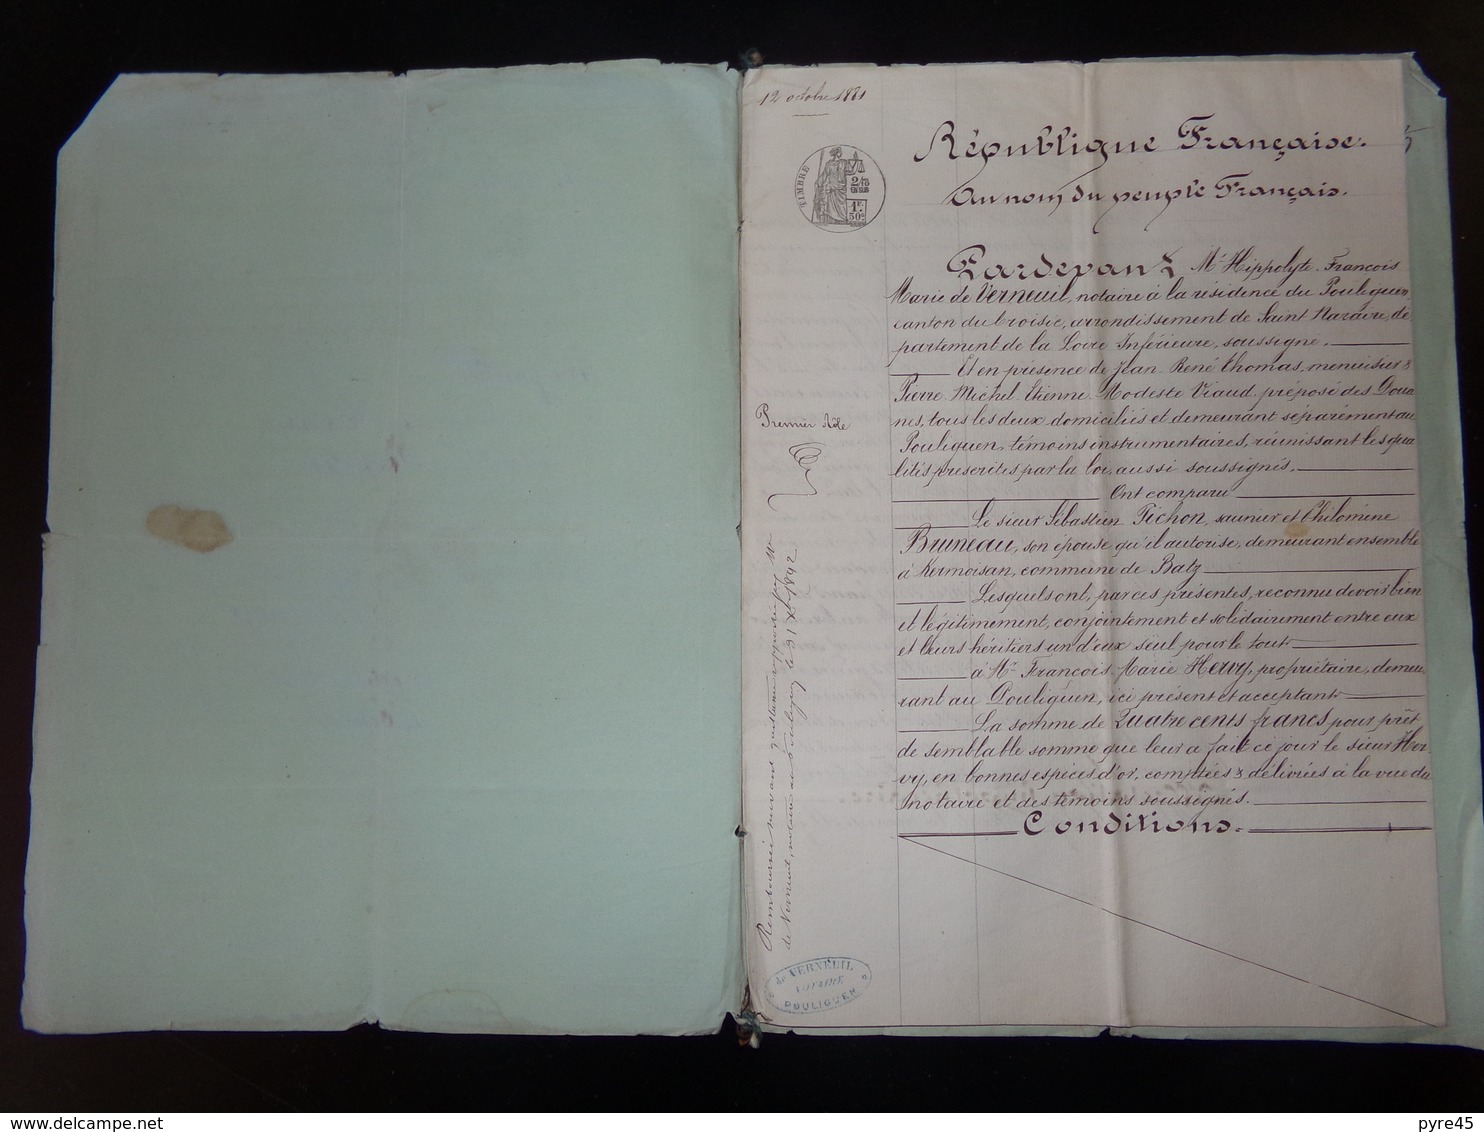 12 octobre 1881
TIMBRE
2/10
EN SUS
1F.
50c
République Française.
Au nom du peuple Français.
Pardevant Me Hippolyte François
Marie de Verneuil, notaire à la résidence du Pouliguen,
canton du Croisic, arrondissement de Saint Nazaire, dé
partement de la Loire Inférieure, soussigné.
Et en présence de Jean René Thomas, menuisier &
Pierre Michel Etienne Modeste Viaud, préposé des Doua
nes, tous les deux domiciliés et demeurant séparément au
Pouliguen, témoins instrumentaires, réunissant les qua
lités prescrites par la loi, aussi soussignés.
Ont comparu
Le sieur Sébastien Pichon, saunier et Philomène
Bruneau, son épouse qu'il autorise, demeurant ensemble
à Kermoisan, commune de Batz
Lesquels ont, par ces présentes, reconnu devoir bien
et légitimement, conjointement et solidairement entre eux
et leurs héritiers un d'eux seul pour le tout
à Mr François Marie Hervy, propriétaire, demeu
rant au Pouliguen, ici présent et acceptant
La somme de Quatre cents francs pour prêt
de semblable somme que leur a fait ce jour le sieur Her
vy, en bonnes espèces d'or, comptées & délivrées à la vue du
notaire et des témoins soussignés.
Conditions.
Premier Rôle
Remboursé suivant quittance rapportée par Me
de Verneuil, notaire au Pouliguen, le 31 Xbre 1892
de VERNEUIL
NOTAIRE
POULIGUEN
pyre45